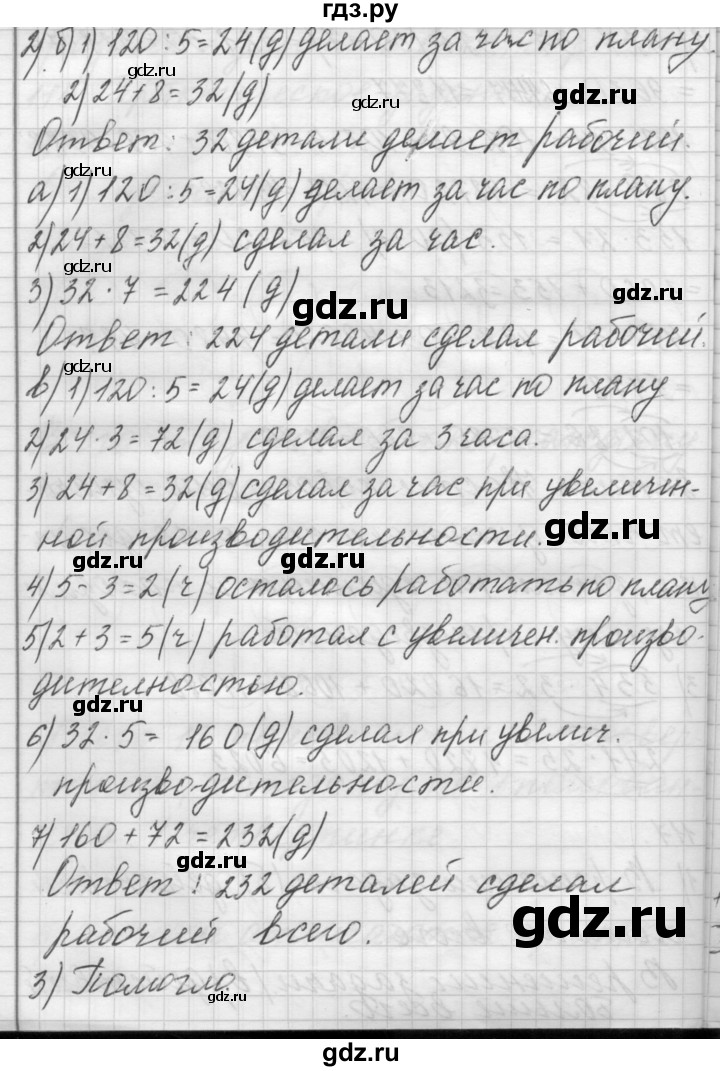 гдз.ру
2) б) 1) 120 : 5 = 24 (д) делает за час по плану.
gdz.ru
2) 24 + 8 = 32 (д)
gdz.ru
gdz.ru
Ответ: 32 детали делает рабочий.
gdz.ru
а) 1) 120 : 5 = 24 (д) делает за час по плану.
2) 24 + 8 = 32 (д) сделал за час.
gdz.ru
3) 32 · 7 = 224 (д)
gdz.ru
gdz.ru
Ответ: 224 детали сделал рабочий.
gdz.ru
в) 1) 120 : 5 = 24 (д) делает за час по плану
2) 24 · 3 = 72 (д) сделал за 3 часа.
gdz.ru
3) 24 + 8 = 32 (д) сделал за час при увеличен-
ной производительности.
gdz.ru
gdz.ru
gdz.ru
4) 5 - 3 = 2 (ч) осталось работать по плану
5) 2 + 3 = 5 (ч) работал с увеличен. произво-
дителностью.
gdz.ru
6) 32 · 5 = 160 (д) сделал при увелич.
производительности.
7) 160 + 72 = 232 (д)
gdz.ru
Ответ: 232 деталей сделал
gdz.ru
рабочий всего.
3) Помогло.
gdz.ru
gdz.ru